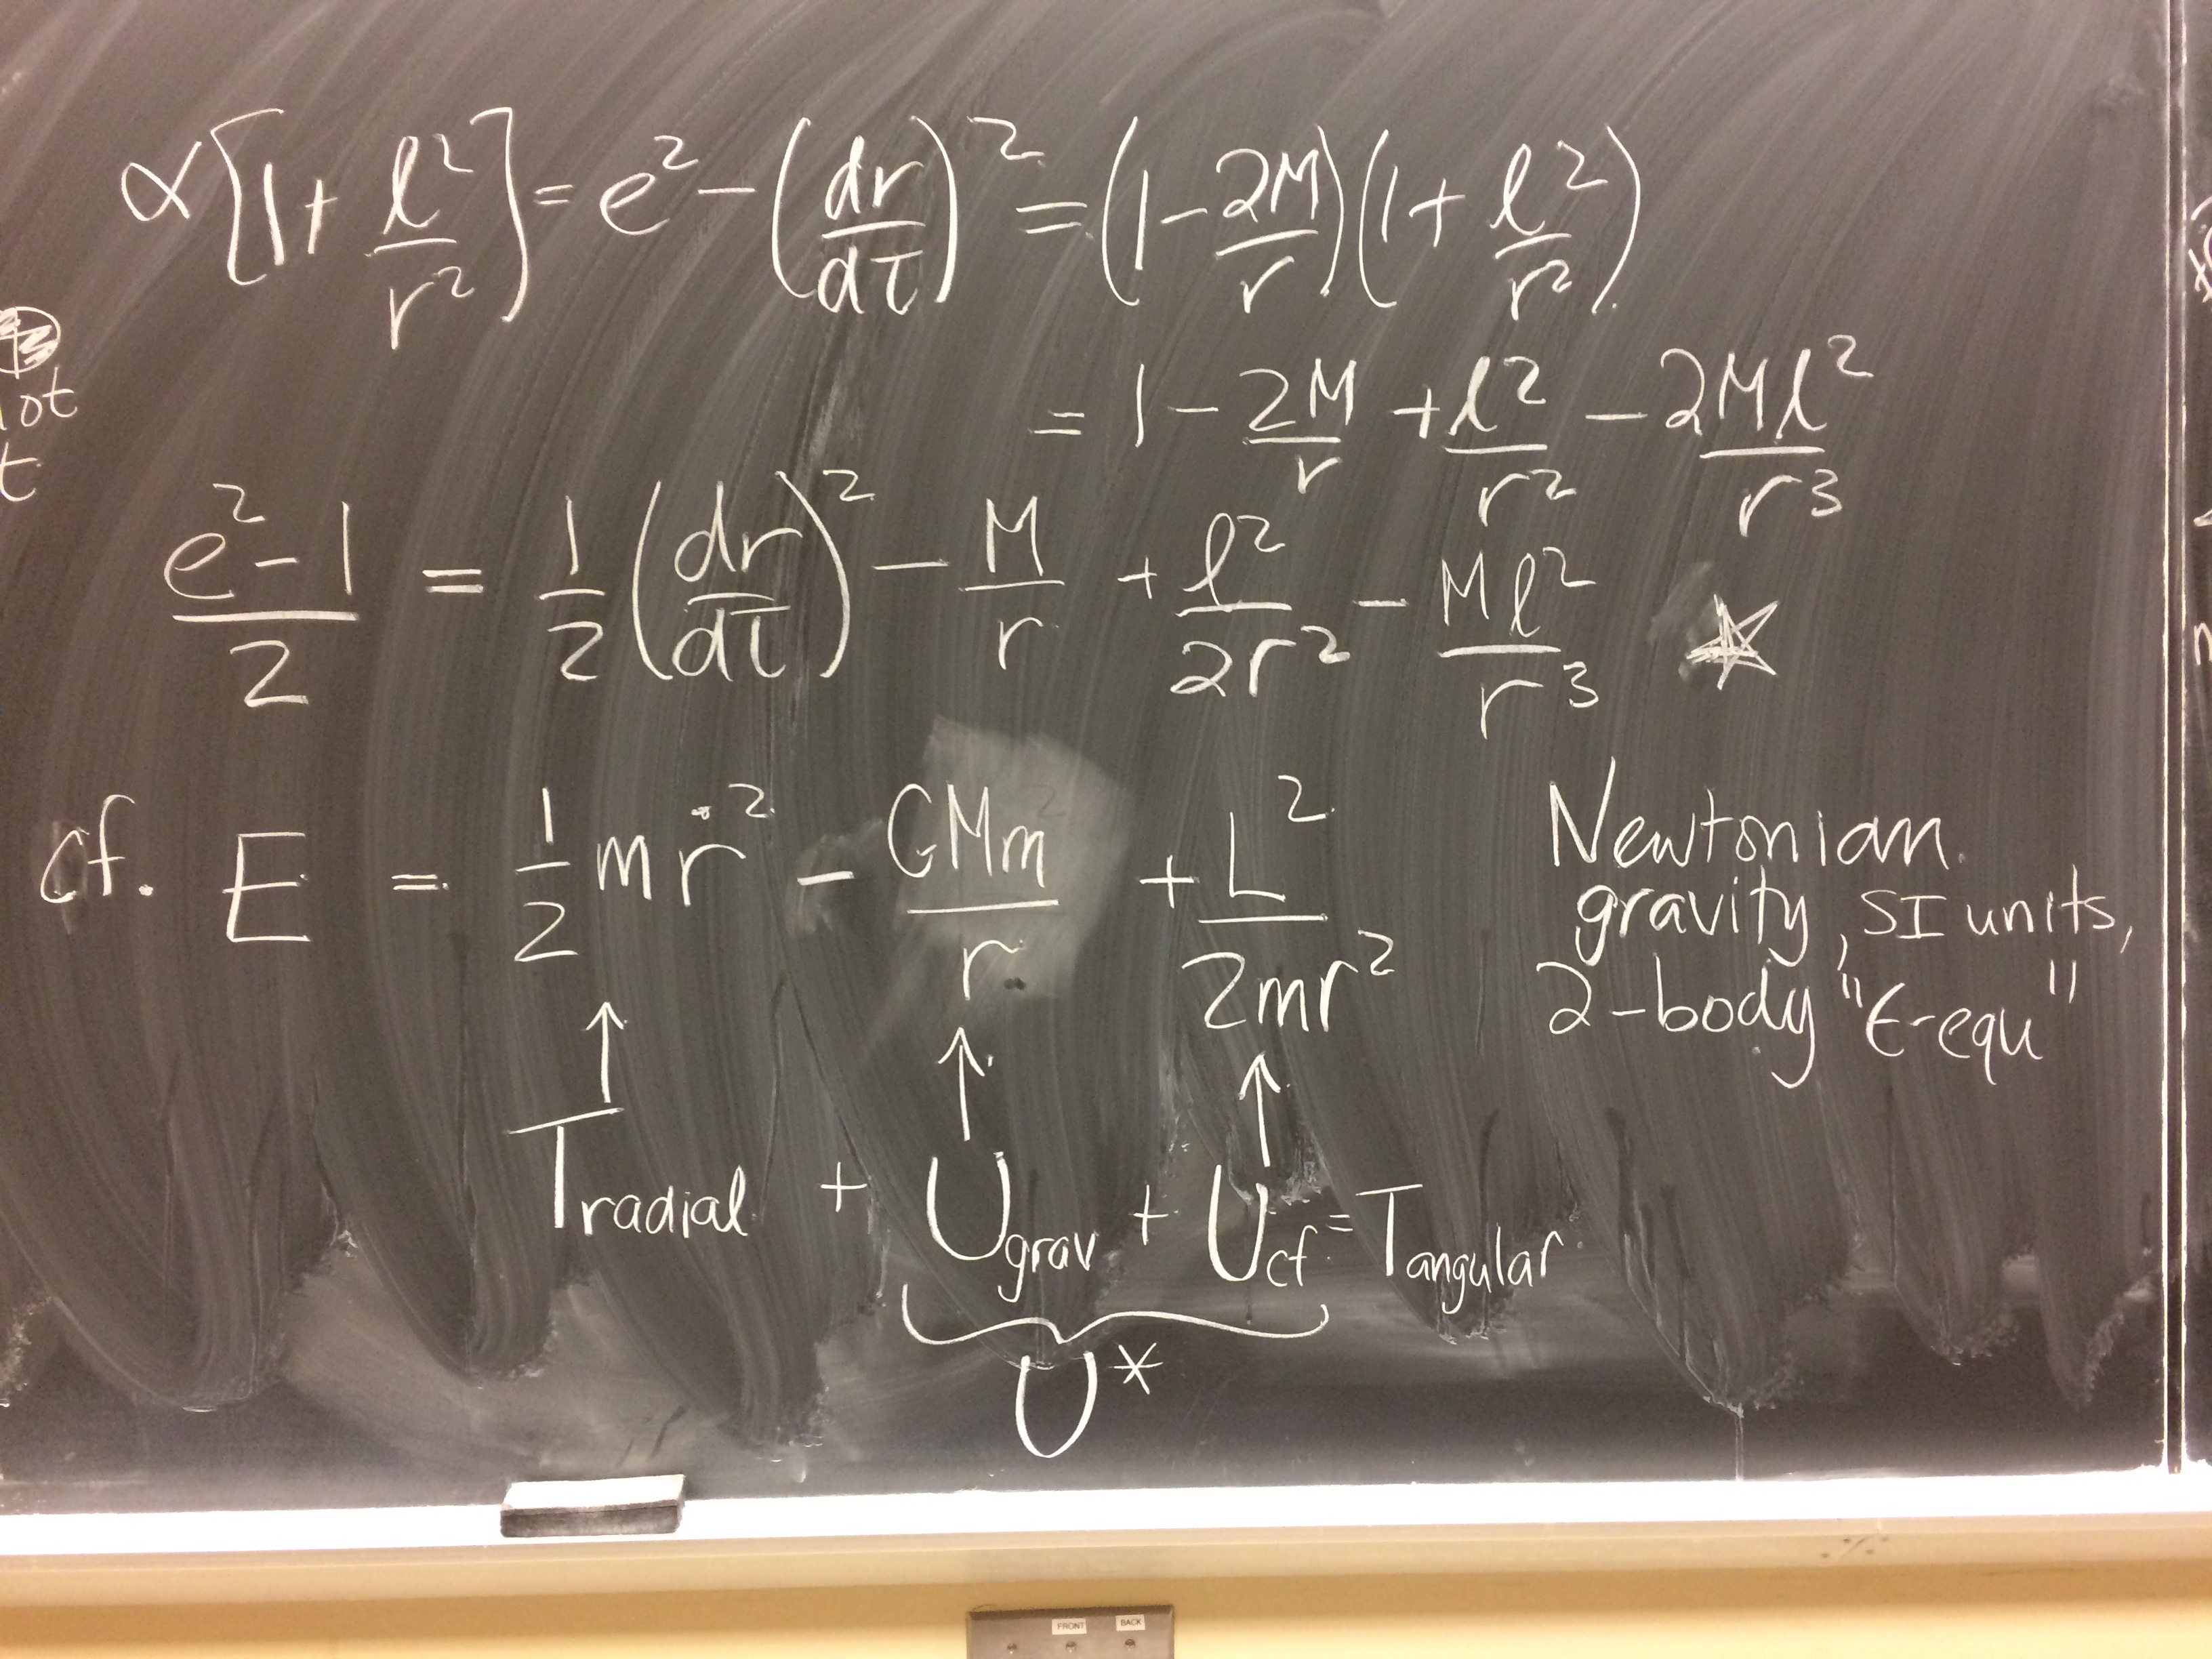 α[1 + l²/r²] = e² − (dr/dτ)² = (1 − 2M/r)(1 + l²/r²)
= 1 − 2M/r + l²/r² − 2Ml²/r³
ot
t
(e² − 1)/2 = 1/2 (dr/dτ)² − M/r + l²/2r² − Ml²/r³ ☆
cf. E = 1/2 mṙ² − GMm/r + L²/2mr²
Newtonian
gravity, SI units,
2-body "E-equ"
↑ ↑ ↑
T radial + U grav + U cf = T angular
U*
FRONT BACK